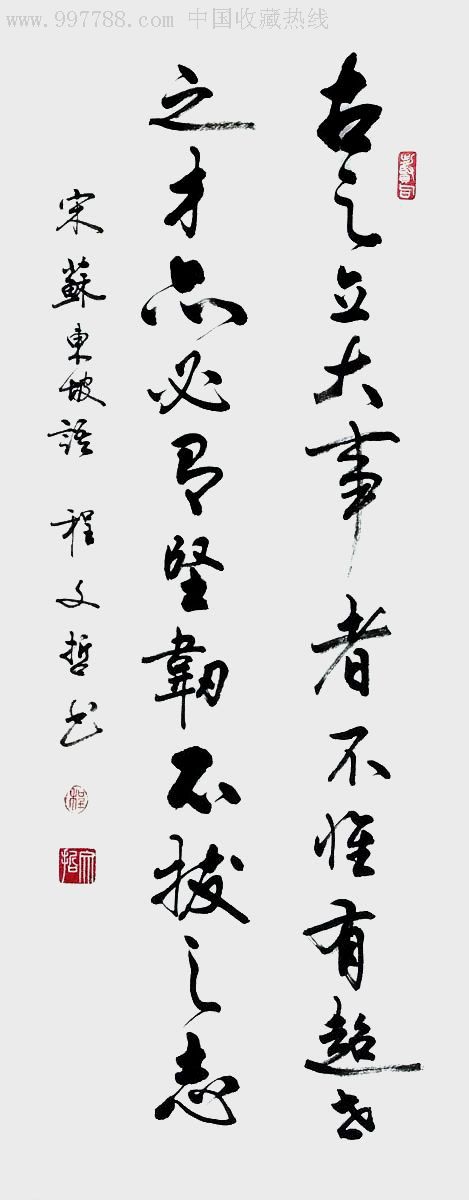 www.997788.com 中国收藏热线
古之立大事者不惟有超世
之才亦必有堅韌不拔之志
宋蘇東坡語 程文哲书
程
文哲